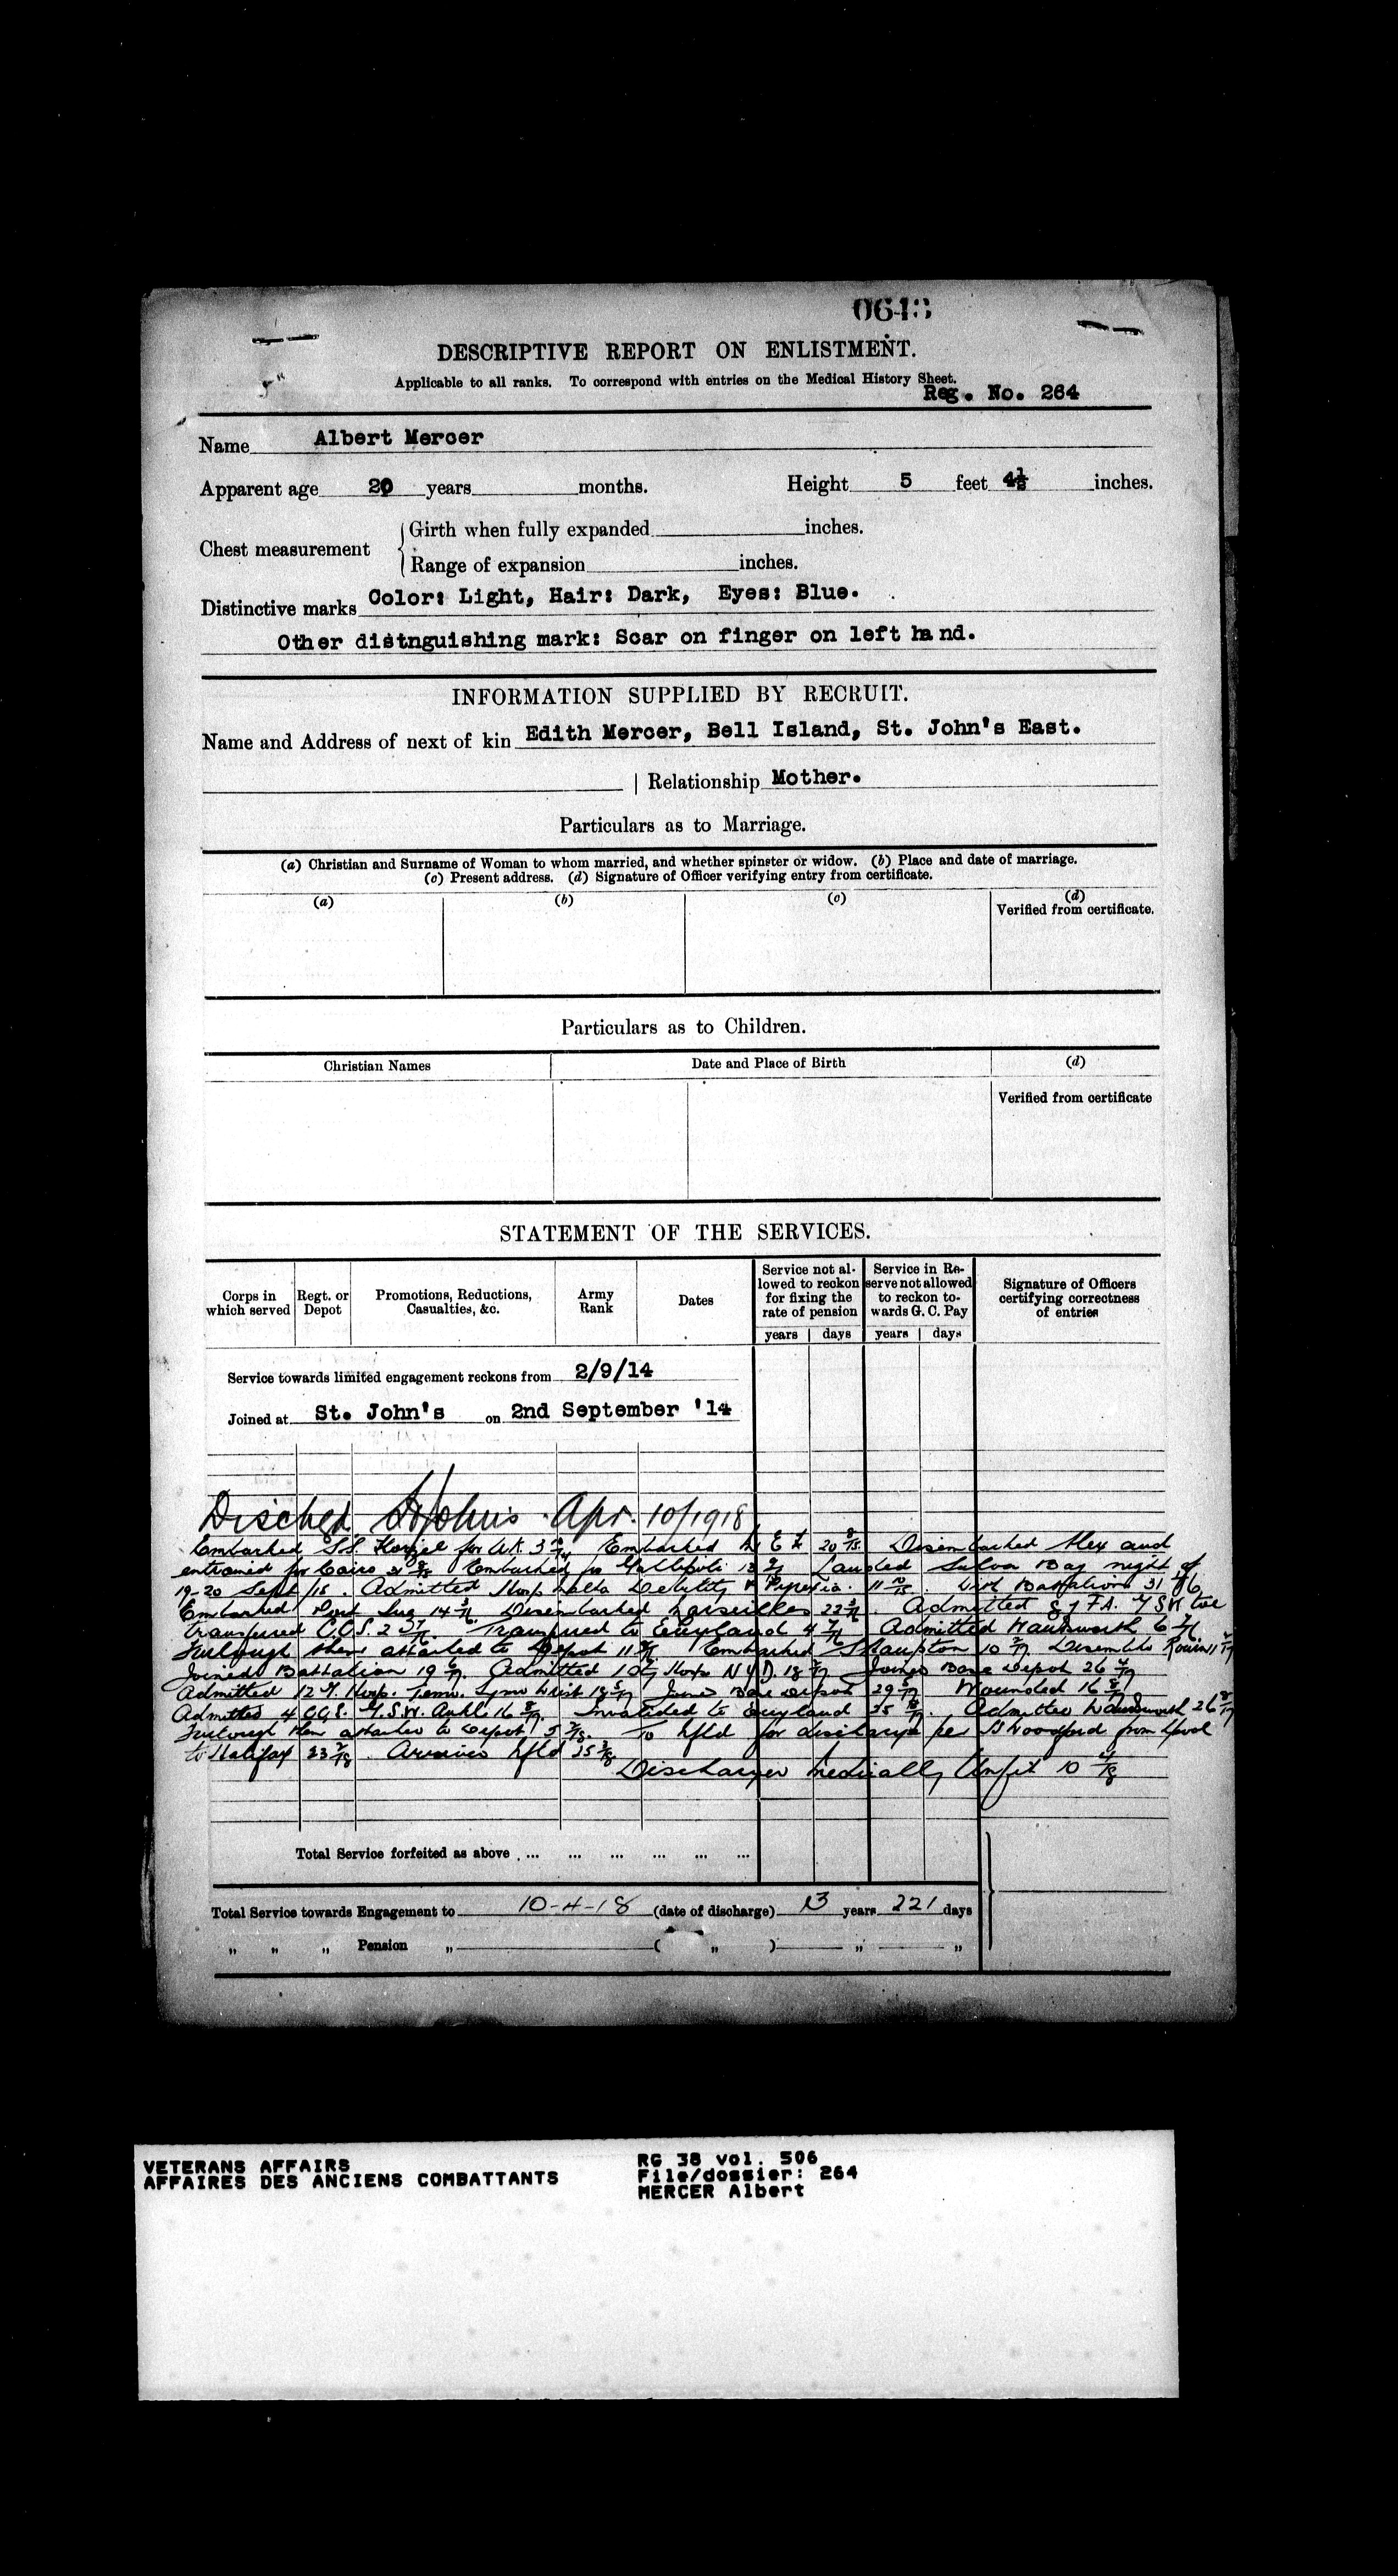 0643
DESCRIPTIVE REPORT ON ENLISTMENT.
Applicable to all ranks. To correspond with entries on the Medical History Sheet.
Reg. No. 264
Name Albert Mercer
Apparent age 20 years months. Height 5 feet 4½ inches.
Chest measurement
Girth when fully expanded inches.
Range of expansion inches.
Distinctive marks Color: Light, Hair: Dark, Eyes: Blue.
Other distnguishing mark: Scar on finger on left hand.
INFORMATION SUPPLIED BY RECRUIT.
Name and Address of next of kin Edith Mercer, Bell Island, St. John's East.
| Relationship Mother.
Particulars as to Marriage.
(a) Christian and Surname of Woman to whom married, and whether spinster or widow. (b) Place and date of marriage.
(c) Present address. (d) Signature of Officer verifying entry from certificate.
(a) (b) (c) (d)
Verified from certificate.
Particulars as to Children.
Christian Names Date and Place of Birth (d)
Verified from certificate
STATEMENT OF THE SERVICES.
Corps in which served Regt. or Depot Promotions, Reductions, Casualties, &c. Army Rank Dates Service not allowed to reckon for fixing the rate of pension Service in Reserve not allowed to reckon towards G. C. Pay Signature of Officers certifying correctness of entries
years days years days
Service towards limited engagement reckons from 2/9/14
Joined at St. John's on 2nd September '14
Disched St Johns Apr. 10/1918
Embarked S.S. for U.K. 3 Embarked 20 8/15 Disembarked Alex and
entrained for Cairo 31 8/15 Embarked for Gallipoli 13 9/15 Landed Suvla Bay night of
19-20 Sept 15. Admitted Hosp Malta Debility & 11 Battalion 31
Embarked Port Suez 14 3/16 Disembarked Marseilles 22 3/16. Admitted 89 F.A. G S W
transferred C.C.S. 2 7/16. Transferred to England 4 7/16 Admitted Wandsworth 6 7/16
Furlough then attached to Depot 11 Embarked S'hampton 10 Disemb Rouen 11
Joined Battalion 19 Admitted Hosp N.Y.D. 18 Joined Base Depot 26 4/17
Admitted 12 G. Hosp. Wrist 18 5/17 Joined Base Depot 29 5/17 Wounded 16 8/17
Admitted 4 C.C.S. G.S.W. Ankle 16 8/17. Invalided to England 25 8/17. Admitted Wandsworth 26 8/17
Furlough then attached to Depot 5 To Nfld for discharge per from L'pool
to Halifax 23 2/18. Arrived Nfld 25 3/18.
Discharged Medically Unfit 10 4/18
Total Service forfeited as above ... ... ... ... ... ...
Total Service towards Engagement to 10-4-18 (date of discharge) 3 years 221 days
" " " Pension " ( " ) " "
VETERANS AFFAIRS
AFFAIRES DES ANCIENS COMBATTANTS
RG 38 vol. 506
File/dossier: 264
MERCER Albert